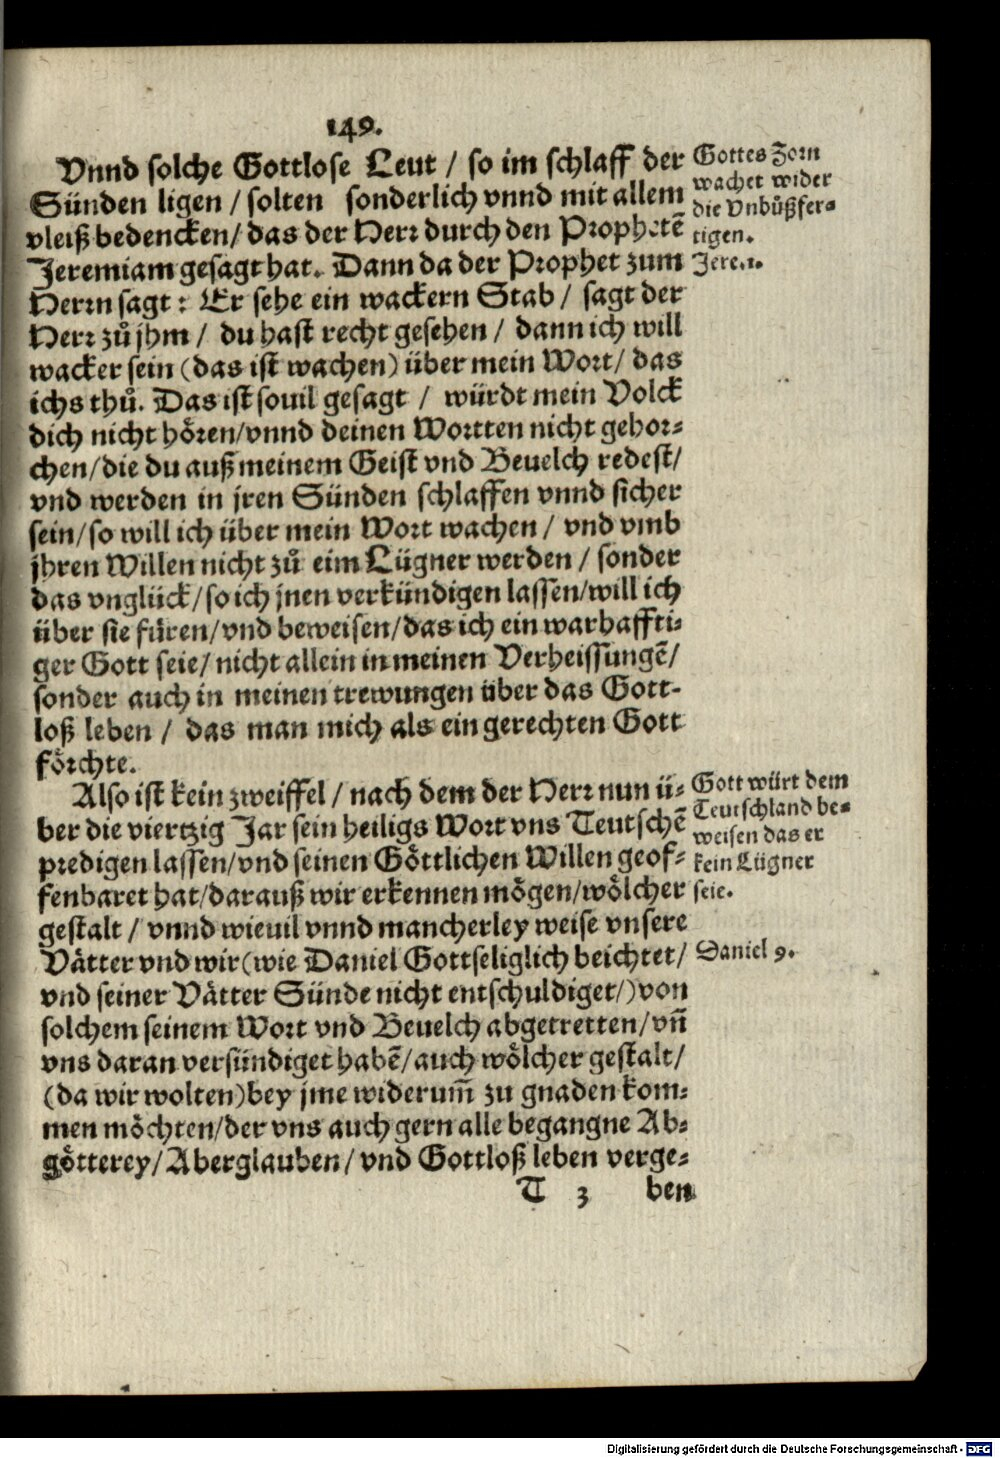 149.
Vnnd solche Gottlose Leut / so im schlaff der
Sünden ligen / solten sonderlich vnnd mit allem
vleiß bedencken / das der Herr durch den Prophetẽ
Jeremiam gesagt hat. Dann da der Prophet zum
Herrn sagt: Er sehe ein wackern Stab / sagt der
Herr zů jhm / du hast recht gesehen / dann ich will
wacker sein (das ist wachen) über mein Wort / das
ichs thů. Das ist souil gesagt / würdt mein Volck
dich nicht hôren / vnnd deinen Wortten nicht gehor-
chen / die du auß meinem Geist vnd Beuelch redest /
vnd werden in jren Sünden schlaffen vnnd sicher
sein / so will ich über mein Wort wachen / vnd vmb
jhren Willen nicht zů eim Lügner werden / sonder
das vnglück / so ich jnen verkündigen lassen / will ich
über sie füren / vnd beweisen / das ich ein warhaffti-
ger Gott seie / nicht allein in meinen Verheissungẽ /
sonder auch in meinen trewungen über das Gott-
loß leben / das man mich als ein gerechten Gott
förchte.
Also ist kein zweiffel / nach dem der Herr nun ü-
ber die viertzig Jar sein heiligs Wort vns Teutschẽ
predigen lassen / vnd seinen Göttlichen Willen geof-
fenbaret hat / darauß wir erkennen mögen / wölcher
gestalt / vnnd wieuil vnnd mancherley weise vnsere
Vätter vnd wir (wie Daniel Gottseliglich beichtet /
vnd seiner Vätter Sünde nicht entschuldiget /) von
solchem seinem Wort vnd Beuelch abgetretten / vñ
vns daran versündiget habẽ / auch wölcher gestalt /
(da wir wolten) bey jme widerum̃ zu gnaden kom-
men möchten / der vns auch gern alle begangne Ab-
götterey / Aberglauben / vnd Gottloß leben verge-
T 3 ben
Gottes Zorn
wachet wider
die Vnbůßfer-
tigen.
Jere. 1.
Gott würt dem
Teutschland be-
weisen das er
kein Lügner
seie.
Daniel 9.
Digitalisierung gefördert durch die Deutsche Forschungsgemeinschaft - DFG